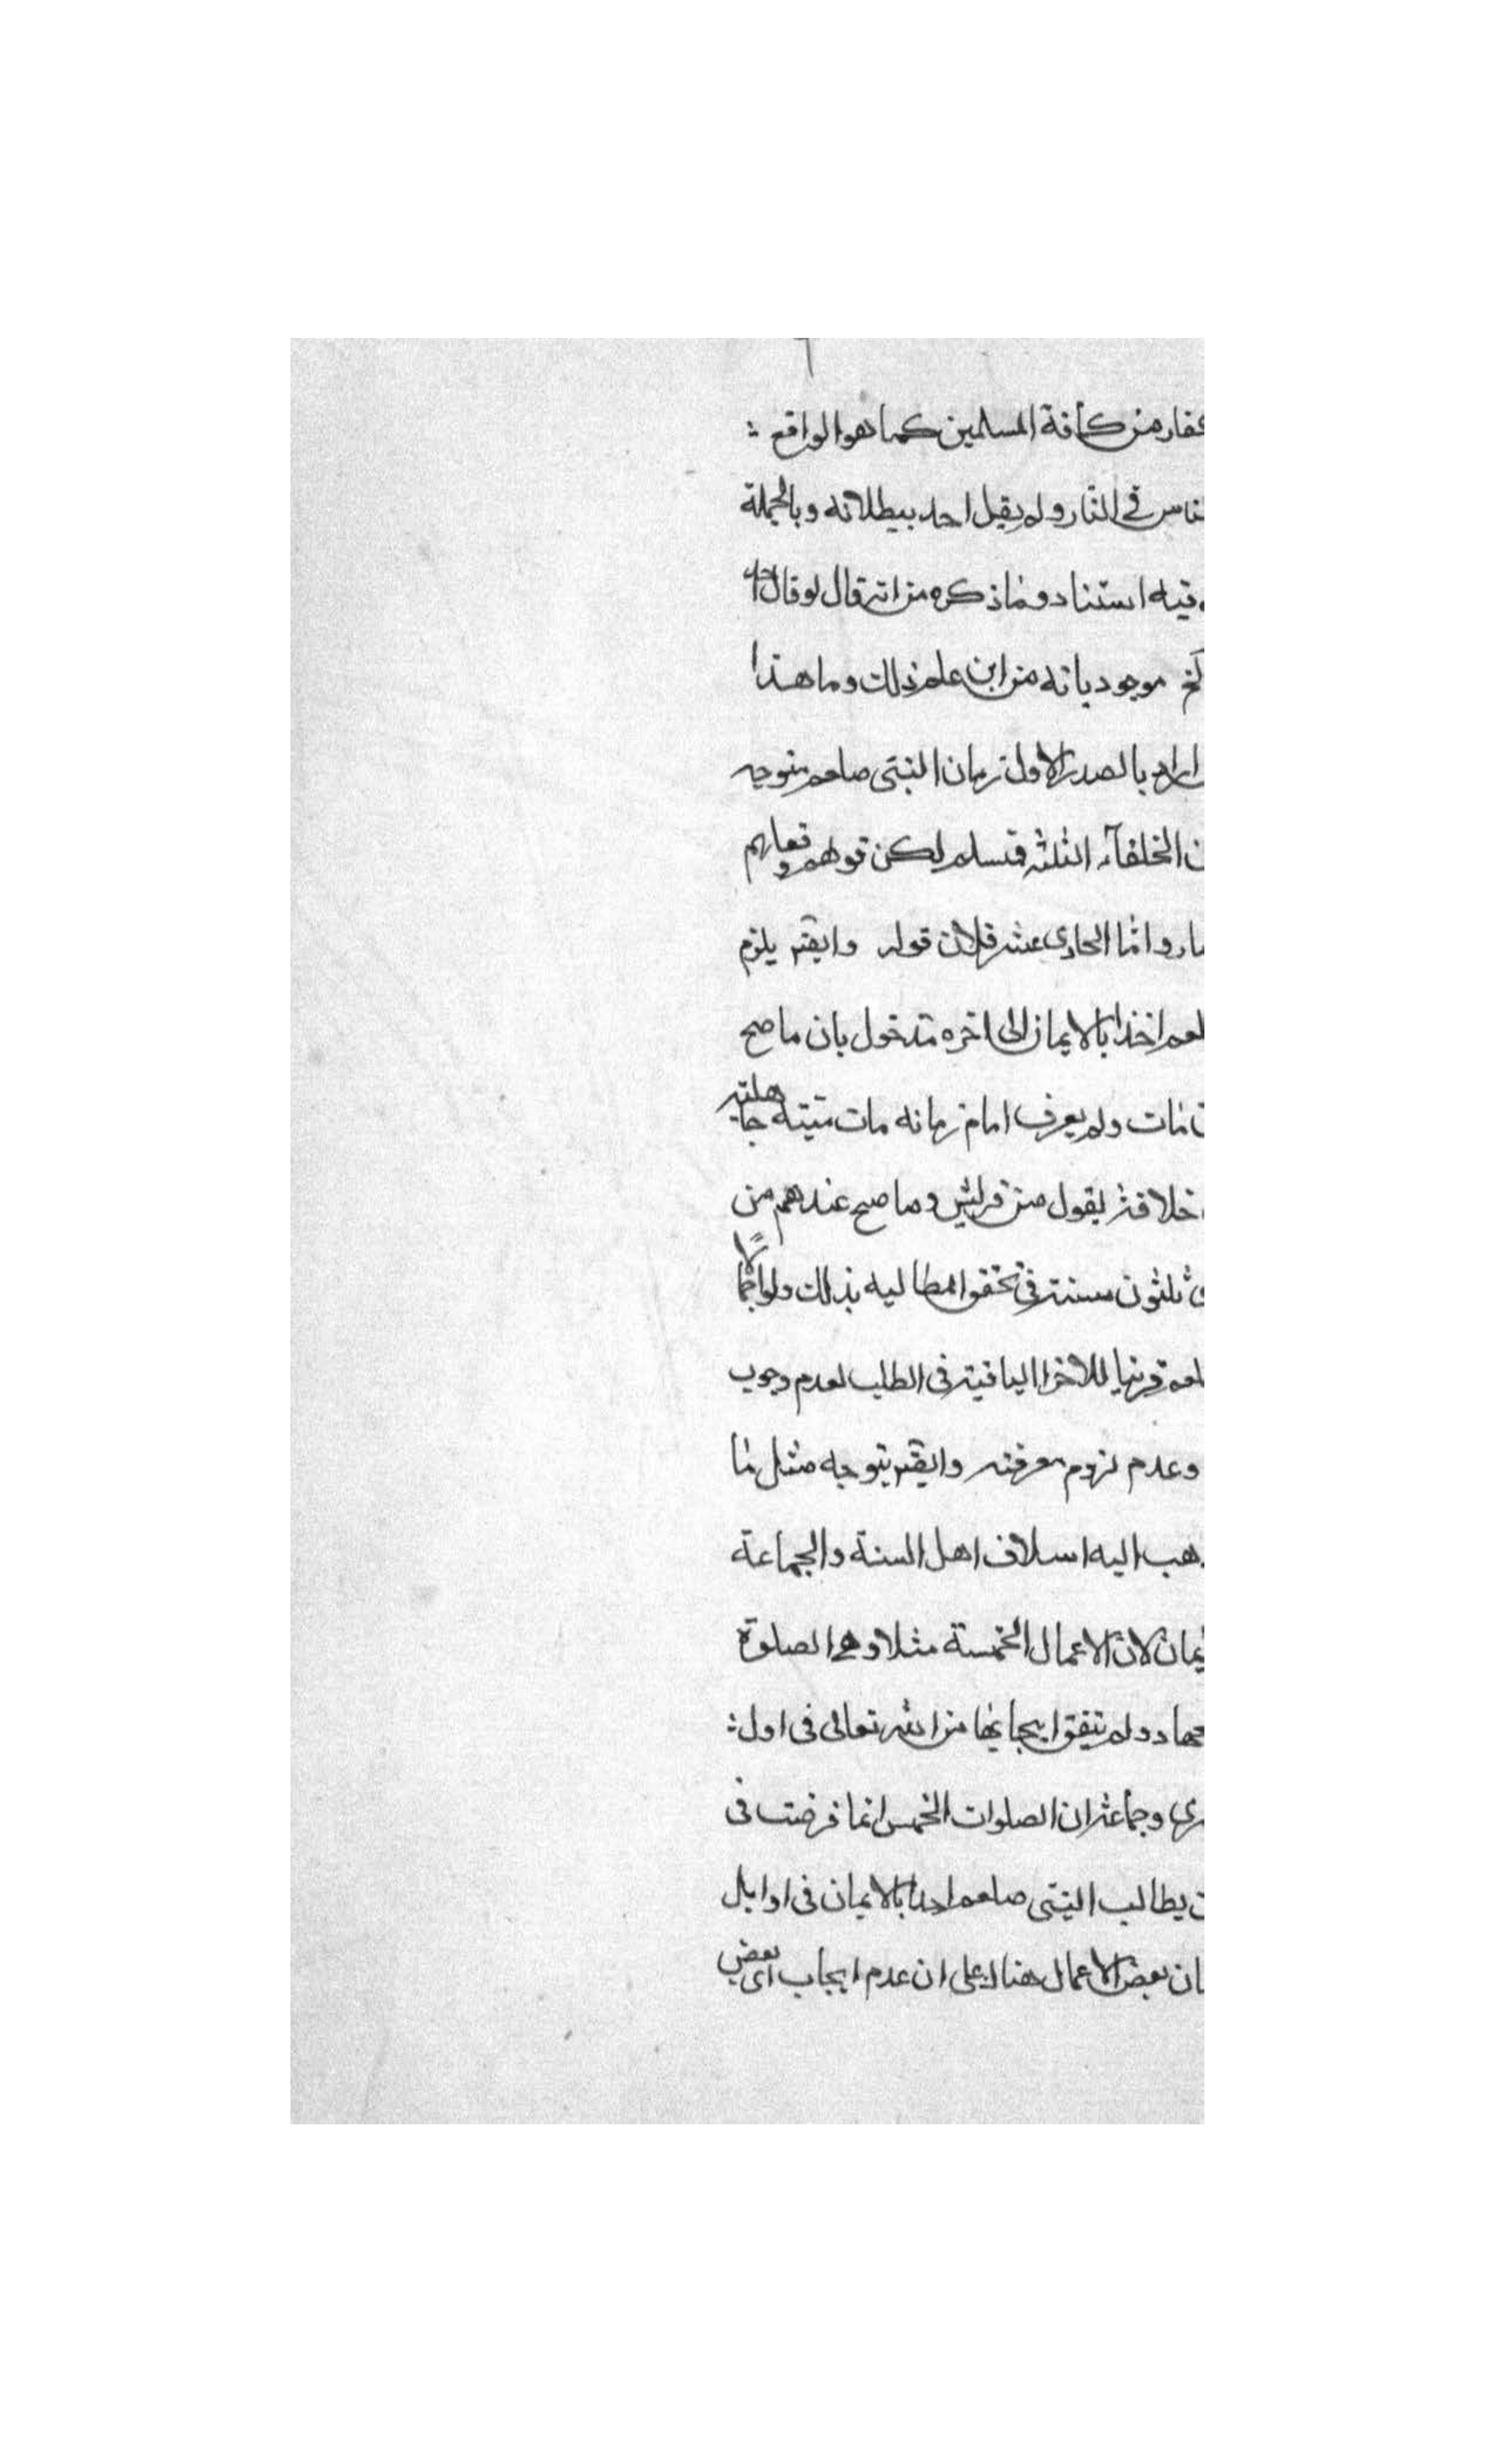 من كافة المسلمين كما هو الواقع :
في النار ولم يقل احد ببطلانه وبالجملة
فيه استناد وما ذكره من انه قال لو قال احد
موجود بانه من اين علم ذلك وما هذا
اراد بالصدر الاول زمان النبى صلعم متوجه
الخلفاء الثلثه فتسلم لكن قولهم وفعلهم
واما الحادى عشر فلان قوله وايضه يلزم
احدا بالايمان الى اخره مدخول بان ما صح
مات ولم يعرف امام زمانه مات ميتة جاهلية
خلافته يقول من قريش وما صح عندهم من
ثلثون سنة في تحقق المطالبه بذلك ولو اجمالا
للاخر الباقية في الطلب لعدم وجوب
وعدم لزوم معرفته وايضه يتوجه مثل ما
اليه اسلاف اهل السنة والجماعة
لان الاعمال الخمسة مثلا وهي الصلوة
ولم يتفق ايجابها من الله تعالى في اول :
وجماعة ان الصلوات الخمس انما فرضت في
يطالب النبى صلعم احدا بالايمان في اوايل
بعض الاعمال هناك على ان عدم ايجاب اى بعض